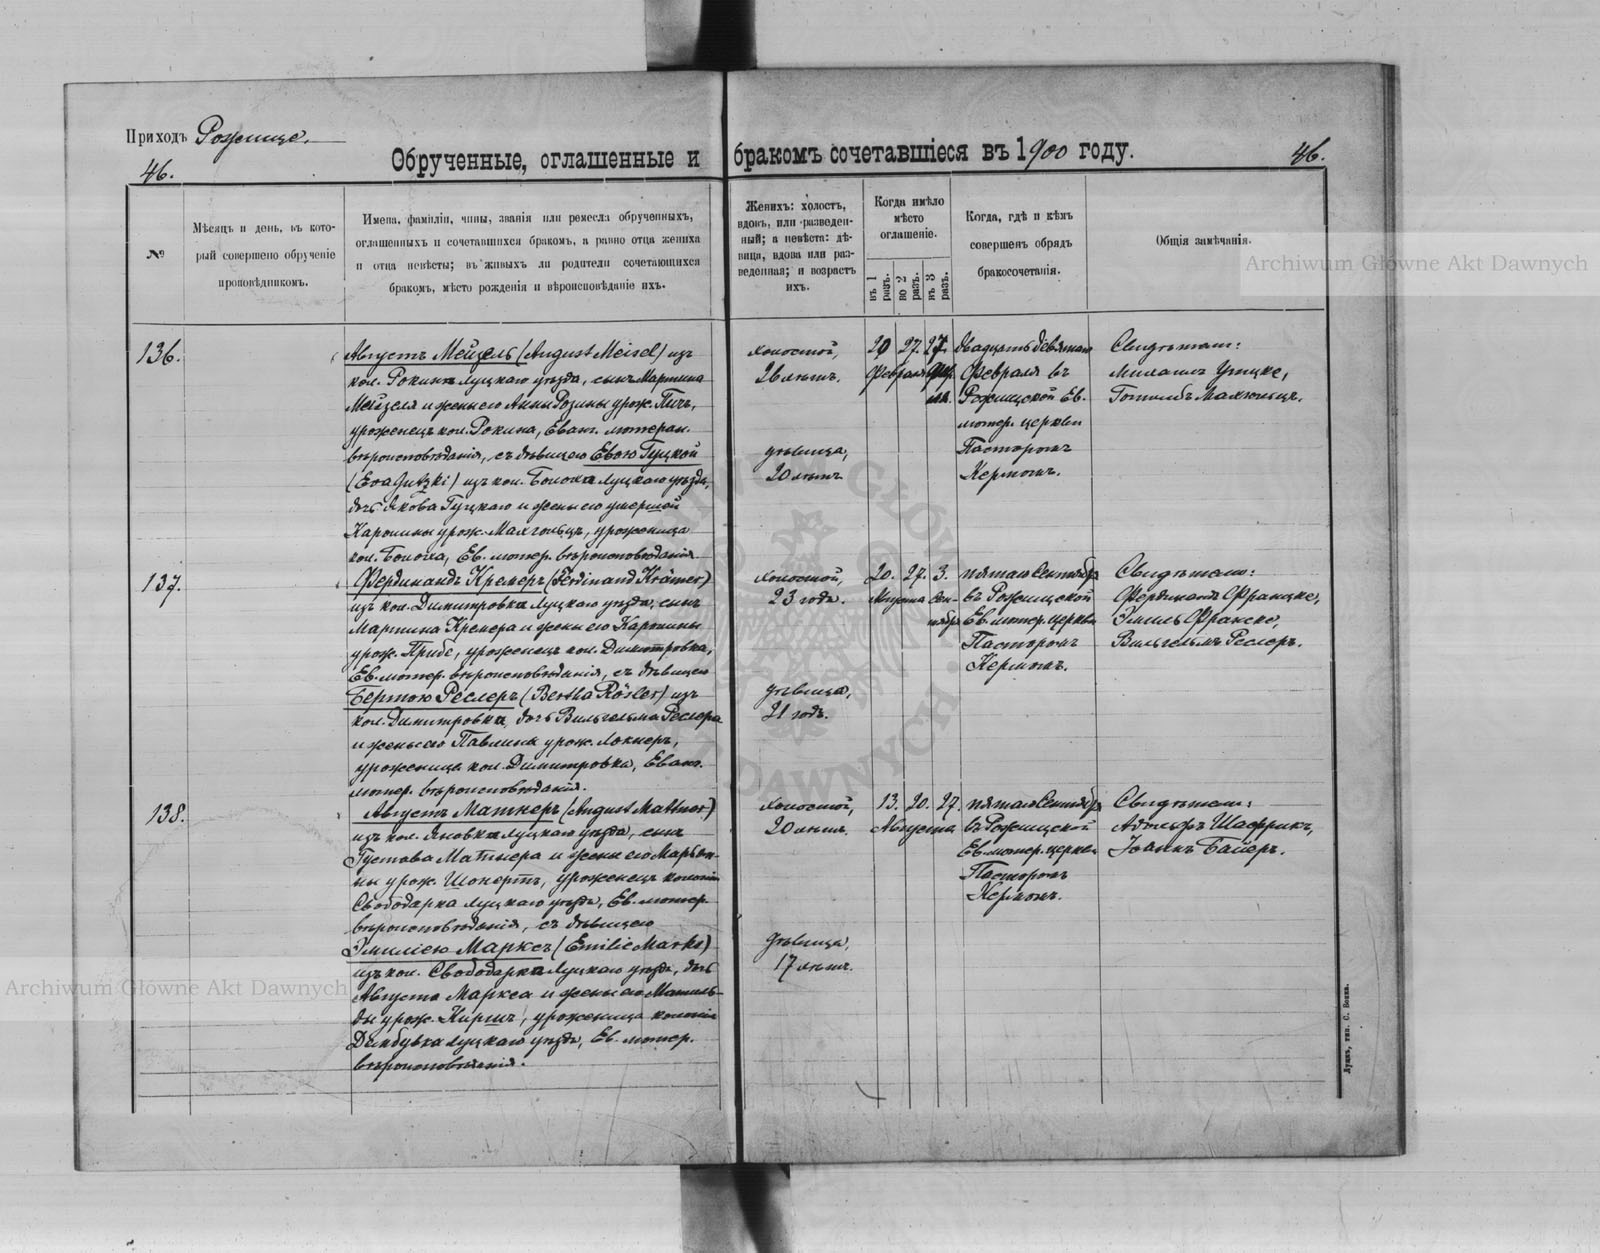 Приходъ Рожище.
46.
Обрученные, оглашенные и бракомъ сочетавшіеся въ 1900 году.
46.
№
Мѣсяцъ и день, въ кото-
рый совершено обрученіе
проповѣдникомъ.
Имена, фамиліи, чины, званія или ремесла обрученныхъ,
оглашенныхъ и сочетавшихся бракомъ, а равно отца жениха
и отца невѣсты; въ живыхъ ли родители сочетающихся
бракомъ, мѣсто рожденія и вѣроисповѣданіе ихъ.
Женихъ: холостъ,
вдовъ, или разведен-
ный; а невѣста: дѣ-
вица, вдова или раз-
веденная; и возрастъ
ихъ.
Когда имѣло
мѣсто
оглашеніе.
въ 1 разъ.
во 2 разъ.
въ 3 разъ.
Когда, гдѣ и кѣмъ
совершенъ обрядъ
бракосочетанія.
Общія замѣчанія.
Archiwum Główne Akt Dawnych
136.
Августъ Мейзель (August Meisel) изъ
кол. Рокина Луцкаго уѣзда, сынъ Мартина
Мейзеля и жены его Анны Розины урож. Пичъ,
уроженецъ кол. Рокина, Еванг. лютеран.
вѣроисповѣданія, съ дѣвицею Евою Гуцкой
(Eva Gutzki) изъ кол. Луцкаго уѣзда,
дочь Якова Гуцкаго и жены его умершей
Каролины урож. уроженица
кол. Ев. лютер. вѣроисповѣданія
холостой,
26 лѣтъ.
дѣвица,
20 лѣтъ
20 27. 27.
Февраля
двадцать девятаго
Февраля въ
Рожищской Ев.
лютер. церкви
Пасторомъ
Керномъ.
Свидѣтели:
Готлибъ
137.
Фердинандъ Кремеръ (Ferdinand Krämer)
изъ кол. Димитровка Луцкаго уѣзда, сынъ
Мартина Кремера и жены его Каролины
урож. уроженецъ кол. Димитровка,
Ев. лютер. вѣроисповѣданія, съ дѣвицею
Бертою Реслеръ (Bertha Rösler) изъ
кол. Димитровка, дочь Вильгельма Реслера
и жены его Павлины урож. Локнеръ,
уроженица кол. Димитровка, Еванг.
лютер. вѣроисповѣданія.
холостой,
23 года.
дѣвица,
21 годъ.
20. 27. 3.
Августа Сен-
тября
пятаго Сентября
въ Рожищской
Ев. лютер. церкви
Пасторомъ
Керномъ.
Свидѣтели:
Фердинандъ
Эмиль
Вильгельмъ Реслеръ.
138.
Августъ Матнеръ (August Mattner)
изъ кол. Яновка Луцкаго уѣзда, сынъ
Густава Матнера и жены его Марьян-
ны урож. Шонертъ, уроженецъ колоніи
Свободарка Луцкаго уѣзда, Ев. лютер.
вѣроисповѣданія, съ дѣвицею
Эмиліею Марксъ (Emilie Marks)
изъ кол. Свободарка Луцкаго уѣзда, дочь
Августа Маркса и жены его Матиль-
ды урож. Киршъ, уроженица колоніи
Луцкаго уѣзда, Ев. лютер.
вѣроисповѣданія.
холостой,
20 лѣтъ.
дѣвица,
17 лѣтъ.
13. 20. 27.
Августа
пятаго Сентября
въ Рожищской
Ев. лютер. церкви
Пасторомъ
Керномъ.
Свидѣтели:
Адольфъ Шафрикъ,
Іоганъ Байеръ.
Archiwum Główne Akt Dawnych
Луцкъ, тип. С. Бокка.